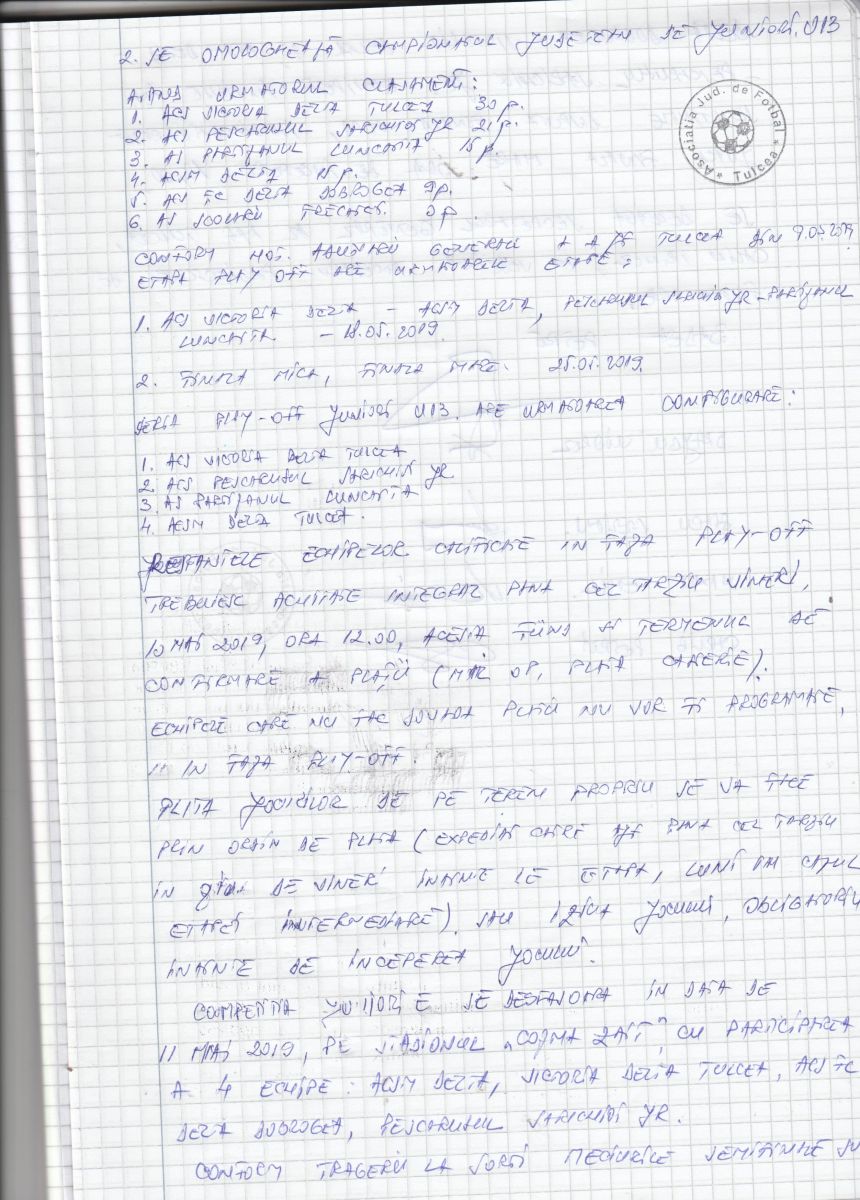 2. SE OMOLOGHEAZĂ CAMPIONATUL JUDETEAN DE JUNIORI U13
AVAND URMATORUL CLASAMENT:
1. ACS VICTORIA DELTA TULCEA 30 p.
2. ACS PESCARUSUL SARICHIOI JR 21 p.
3. AS PARTIZANUL LUNCAVITA 15 p
4. ACSM DELTA 15 p.
5. ACS FC DELTA DOBROGEA 9 p.
6. AS TRECATOR. 0 p.
Asociatia Jud. de Fotbal * Tulcea *
CONFORM HOT. ADUNARII GENERALE A AJF TULCEA DIN 7.05.2019
ETAPA PLAY OFF ARE URMATOARELE ETAPE:
1. ACS VICTORIA DELTA - ACSM DELTA, PESCARUSUL SARICHIOI JR - PARTIZANUL
LUNCAVITA - 18.05.2019.
2. FINALA MICA, FINALA MARE. 25.05.2019.
SERIA PLAY-OFF JUNIORI U13. ARE URMATOAREA CONFIGURARE:
1. ACS VICTORIA DELTA TULCEA
2. ACS PESCARUSUL SARICHIOI JR
3. AS PARTIZANUL LUNCAVITA
4. ACSM DELTA TULCEA.
RESTANTELE ECHIPELOR CALIFICATE IN FAZA PLAY-OFF
TREBUIESC ACHITATE INTEGRAL PANA CEL TARZIU VINERI,
10 MAI 2019, ORA 12.00, ACESTA FIIND SI TERMENUL DE
CONFIRMARE A PLATII (MAIL OP, PLATA CASERIE).
ECHIPELE CARE NU FAC DOVADA PLATII NU VOR FI PROGRAMATE,
IN FAZA PLAY-OFF.
PLATA JOCURILOR DE PE TEREN PROPRIU SE VA FACE
PRIN ORDIN DE PLATA (EXPEDIAT CATRE AJF PANA CEL TARZIU
IN ZIUA DE VINERI INAINTE DE ETAPA, LUNI IN CAZUL
ETAPEI INTERMEDIARE), SAU IN ZIUA JOCULUI, OBLIGATORIU
INAINTE DE INCEPEREA JOCULUI.
COMPETITIA JUNIORI E SE DESFASOARA IN DATA DE
11 MAI 2019, PE STADIONUL „COJMA ZAIT”, CU PARTICIPAREA
A 4 ECHIPE: ACSM DELTA, VICTORIA DELTA TULCEA, ACS FC
DELTA DOBROGEA, PESCARUSUL SARICHIOI JR.
CONFORM TRAGERII LA SORTI MECIURILE SEMIFINALE